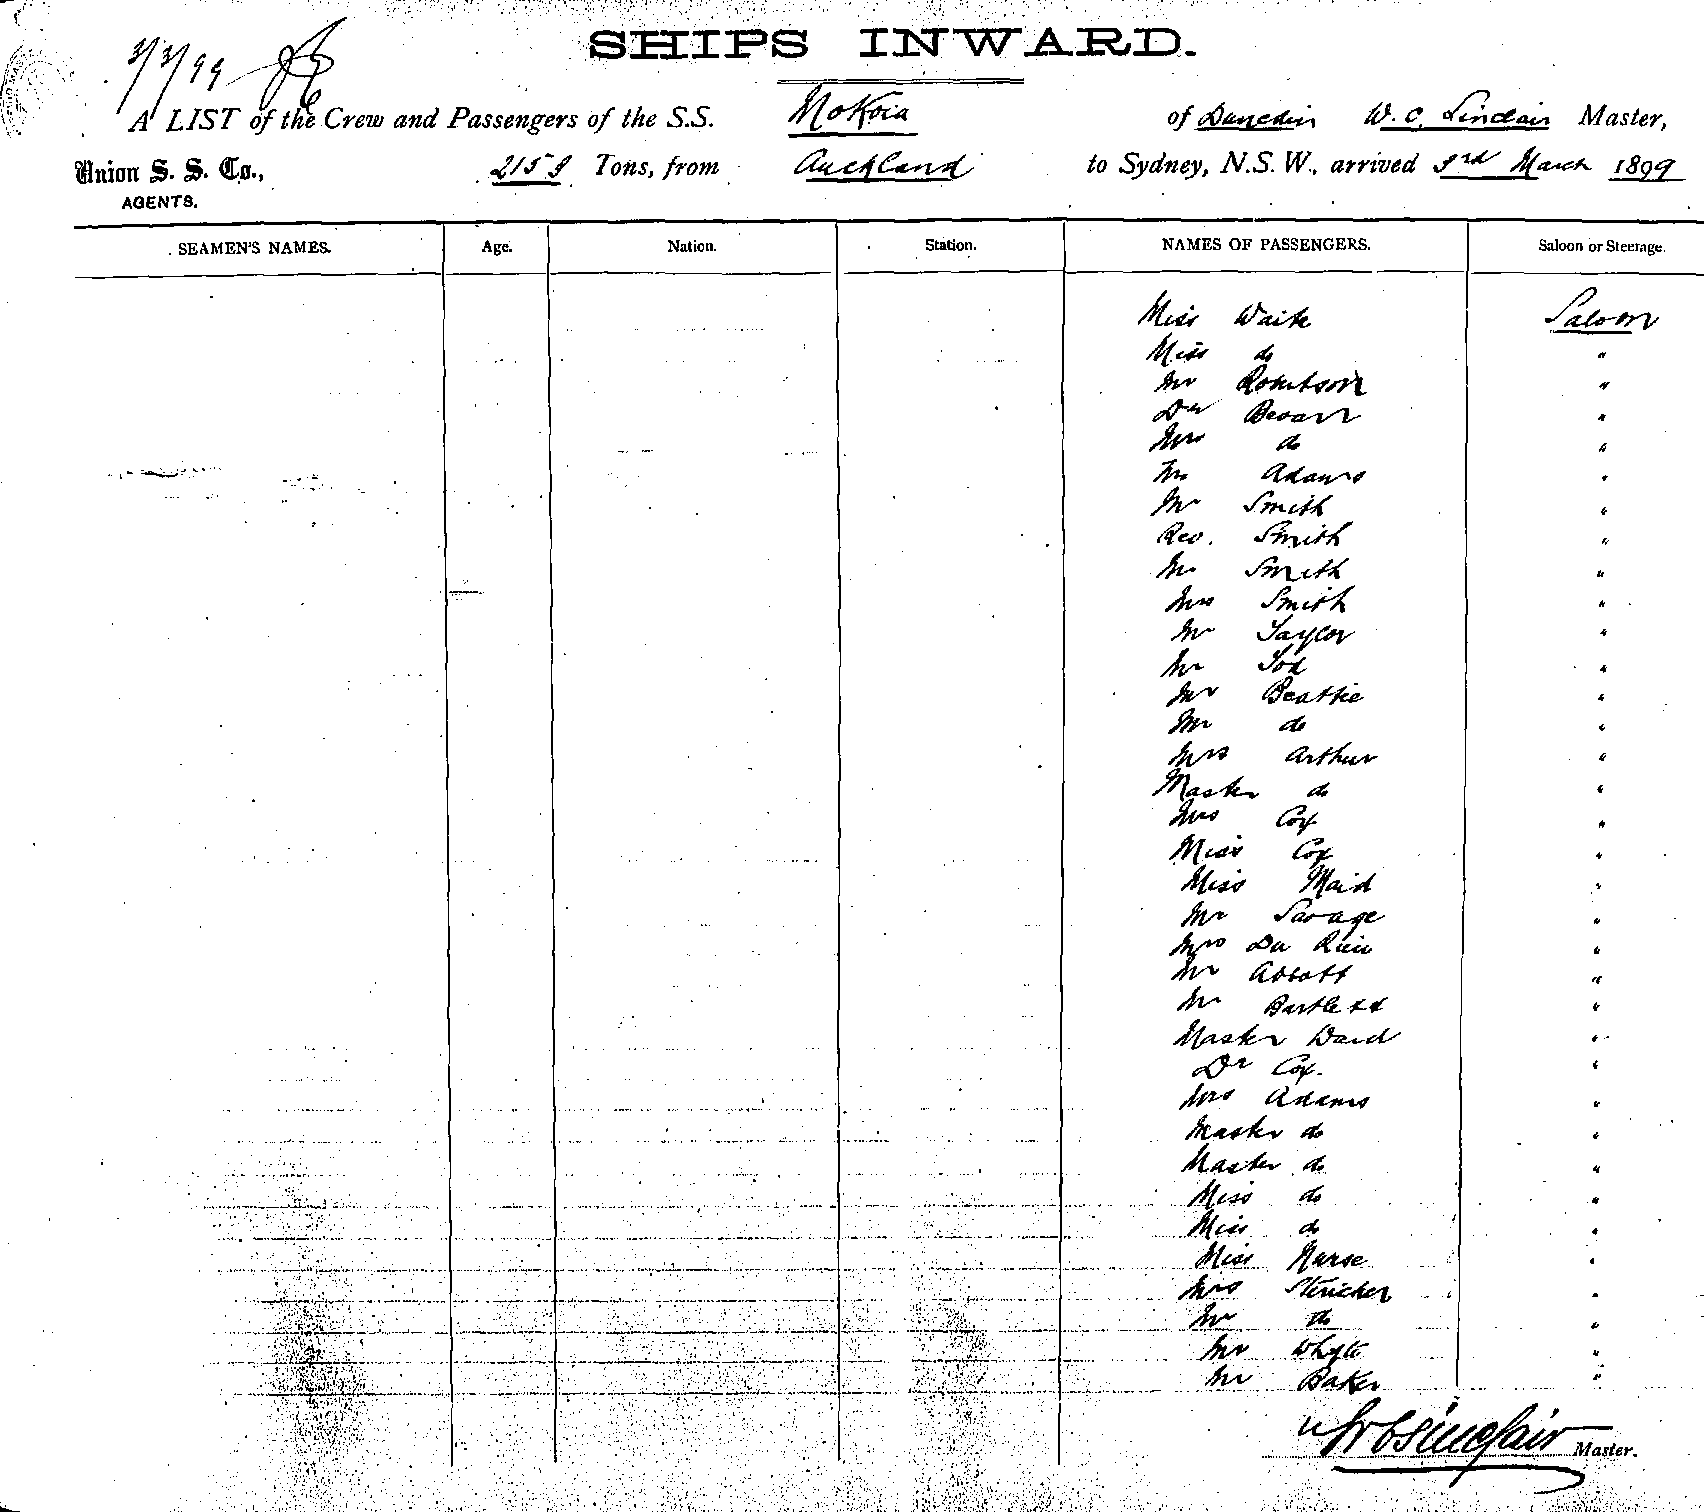 3/3/99
SHIPS INWARD.
A LIST of the Crew and Passengers of the S.S. Mokoia of Dunedin W. C. Sinclair Master,
Union S. S. Co., 2159 Tons, from Auckland to Sydney, N.S.W., arrived 3rd March 1899
AGENTS.
SEAMEN'S NAMES. Age. Nation. Station. NAMES OF PASSENGERS. Saloon or Steerage.
Miss Waite Saloon
Miss do "
Mr Robertson "
Dr Bevan "
Mrs do "
Mr Adams "
Mr Smith "
Rev. Smith "
Mr Smith "
Mrs Smith "
Mr Taylor "
Mr "
Mr Beattie "
Mr do "
Mrs Arthur "
Master do "
Mrs Cox "
Miss Cox "
Miss Maid "
Mr Savage "
Mrs Du "
Mr Abbott "
Mr Bartlett "
Master "
Dr Cox. "
Mrs Adams "
Master do "
Master do "
Miss do "
Miss do "
Miss Nurse "
Mrs "
Mr do "
Mr Whyte "
Mr Baker "
W C Sinclair Master.